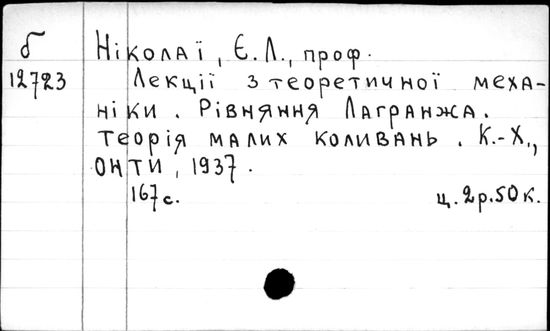 б
12723
Ніколаї, Є.Л., проф.
Лекції з теоретичної меха-
ніки. Рівняння Лагранжа.
Теорія малих коливань. К.-Х.,
ОНТИ, 1937.
167с. ц.2р.50к.